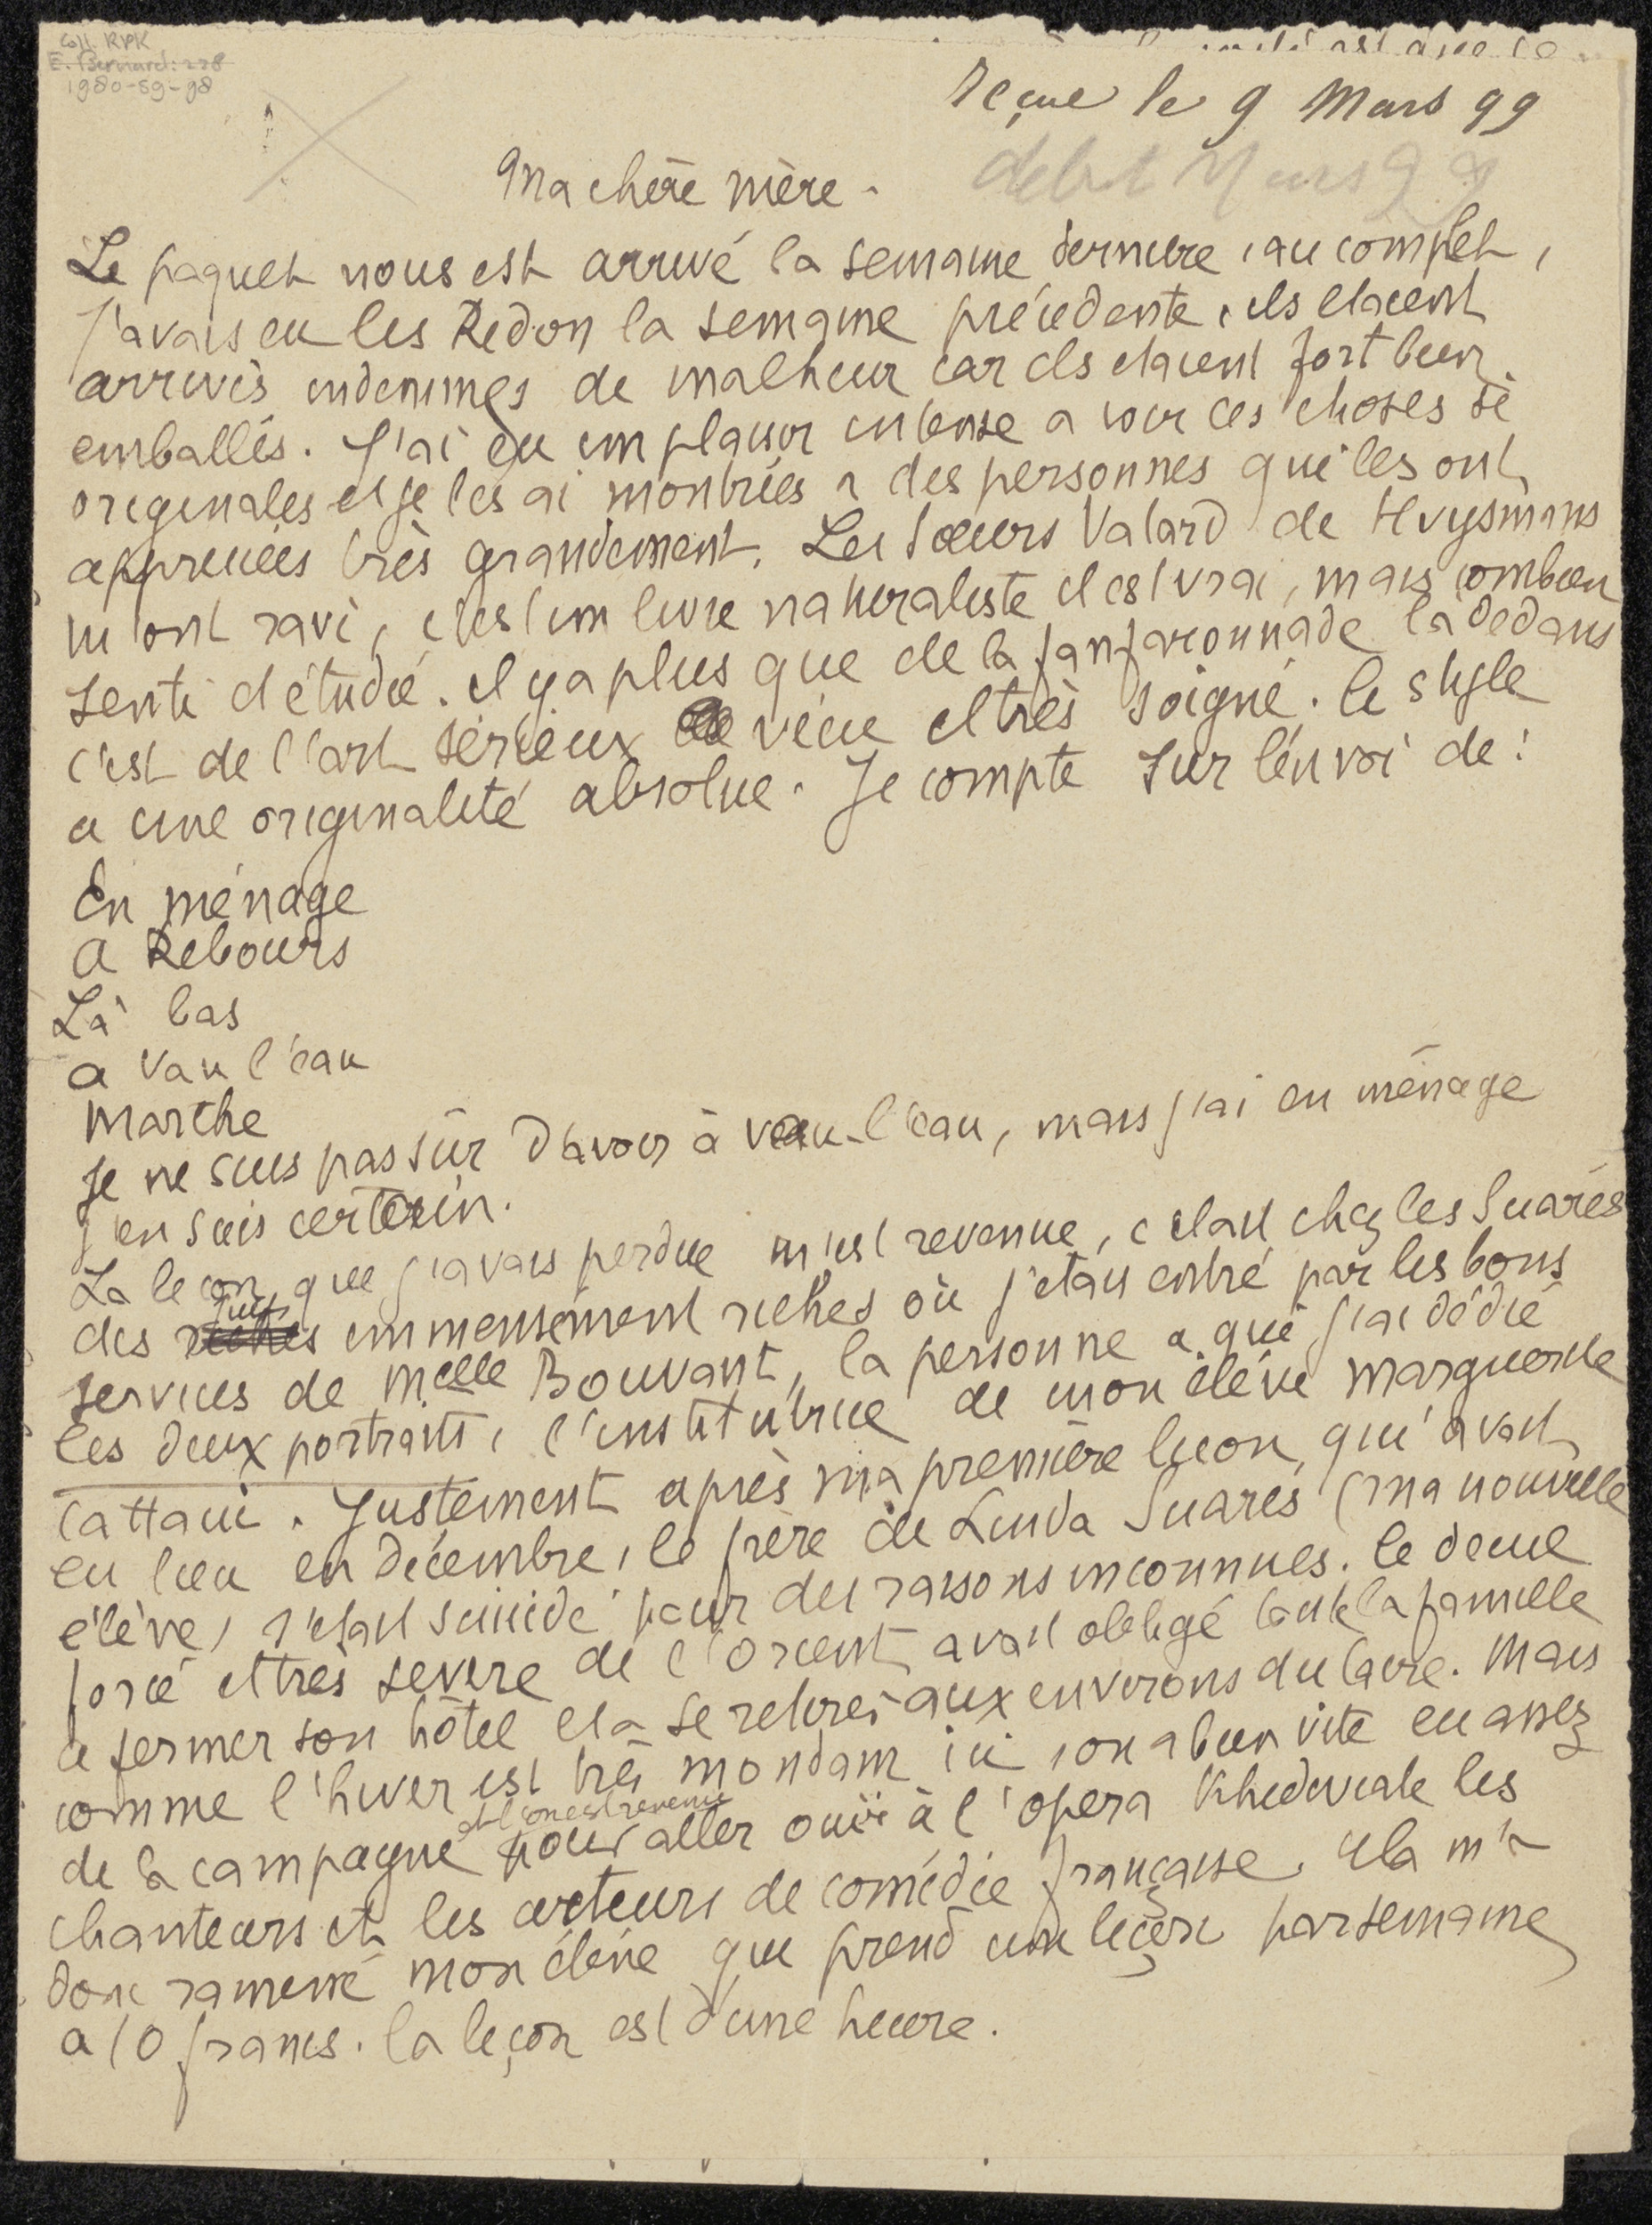 Coll. RPK
E. Bernard: 228
1980-59-98
reçue le 9 Mars 99
début Mars 99
Ma chère mère.
Le paquet nous est arrivé la semaine dernière, au complet,
j'avais eu les Redon la semaine précédente, ils étaient
arrivés indemmes de malheur car ils étaient fort bien
emballés. J'ai eu un plaisir intense a voir ces choses si
originales et je les ai montrées a des personnes qui les ont
appreciées très grandement. Les sœurs Vatard de Huysmans
m'ont ravi, c'est un livre naturaliste il est vrai, mais combien
senti et étudié. il y a plus que de la fanfaronnade là dedans
c'est de l'art sérieux vécu et très soigné. le style
a une originalité absolue. Je compte sur l'envoi de:
En ménage
a Rebours
Là bas
a vau l'eau
Marthe
Je ne suis pas sûr d'avoir à vau-l'eau, mais j'ai en ménage
j'en suis certain.
La leçon que j'avais perdue m'est revenue, c'etait chez les Suarés
des juifs immensément riches où j'etais entré par les bons
services de Melle Bouvant, la personne a qui j'ai dédié
les deux portraits, l'institutrice de mon élève Marguerite
Cattaui. Justement après ma première leçon, qui avait
eu lieu en décembre, le frère de Linda Suarès (ma nouvelle
élève, s'etait suicidé pour des raisons inconnues. le deuil
forcé et très severe de l'Orient avait obligé toute la famille
a fermer son hôtel et a se retirer aux environs du Caire. Mais
comme l'hiver est très mondain ici, on a bien vite eu assez
de la campagne et l'on est revenu pour aller ouïr à l'opera Khedeviale les
chanteurs et les acteurs de comédie française. Cela m'a
donc ramené mon élève qui prend une leçon par semaine
a 10 francs. la leçon est d'une heure.